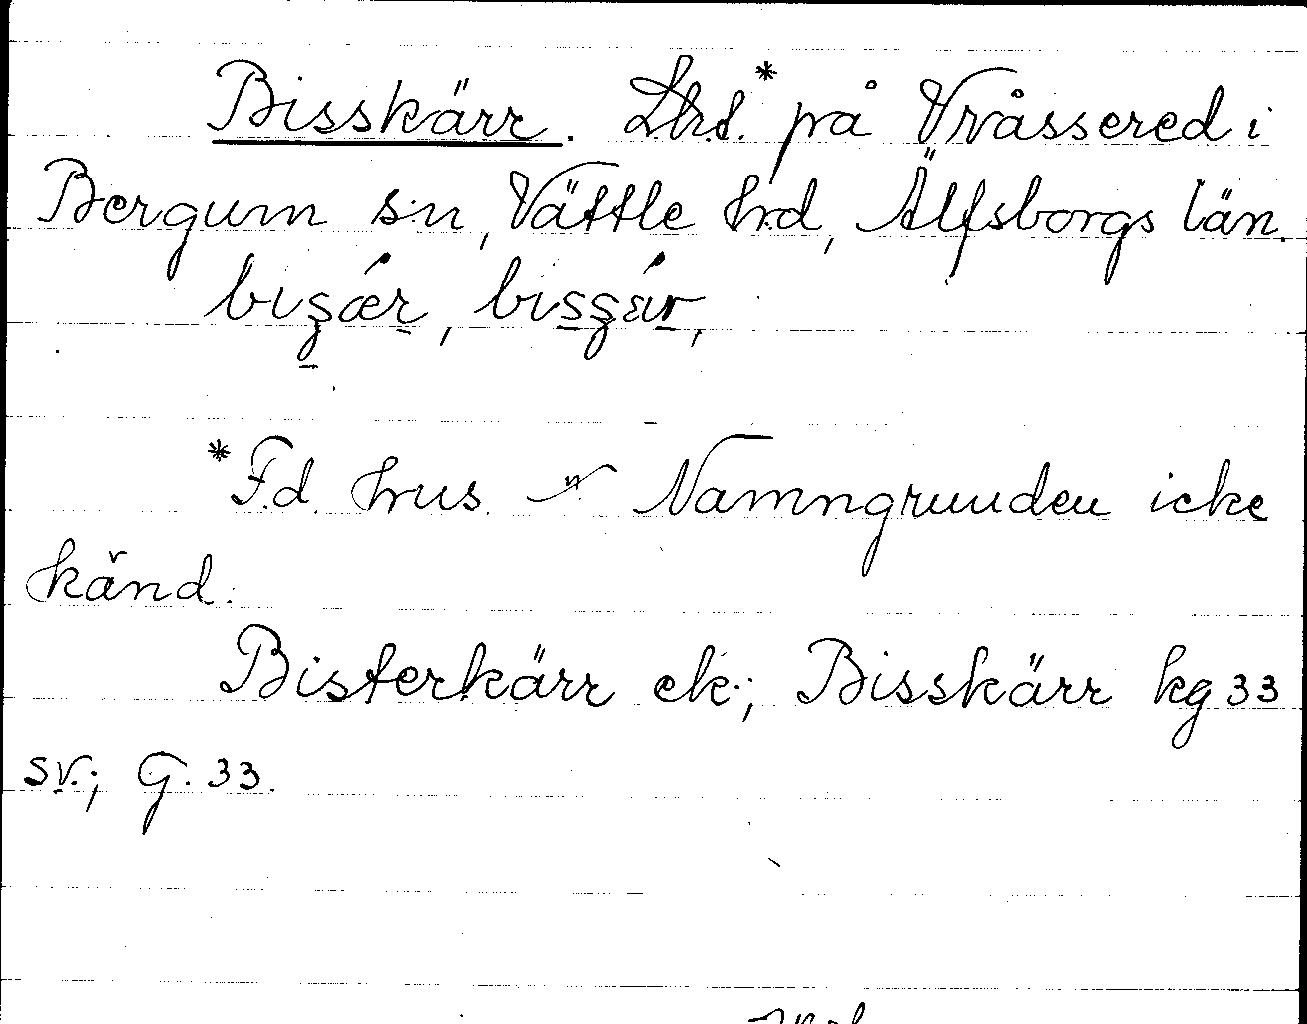 Bisskärr. Lhd.* på Vråssered i
Bergum sn, Vättle hd, Älfsborgs län.
*F.d. hus. Namngrunden icke
känd.
Bisterkärr ek.; Bisskärr kg 33
sv.; G. 33.